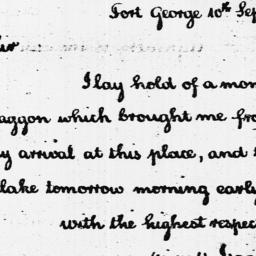 Fort George 10th Sep
Sir
I lay hold of a mom
aggon which brought me fro
y arrival at this place, and
lake tomorrow morning early
with the highest respec